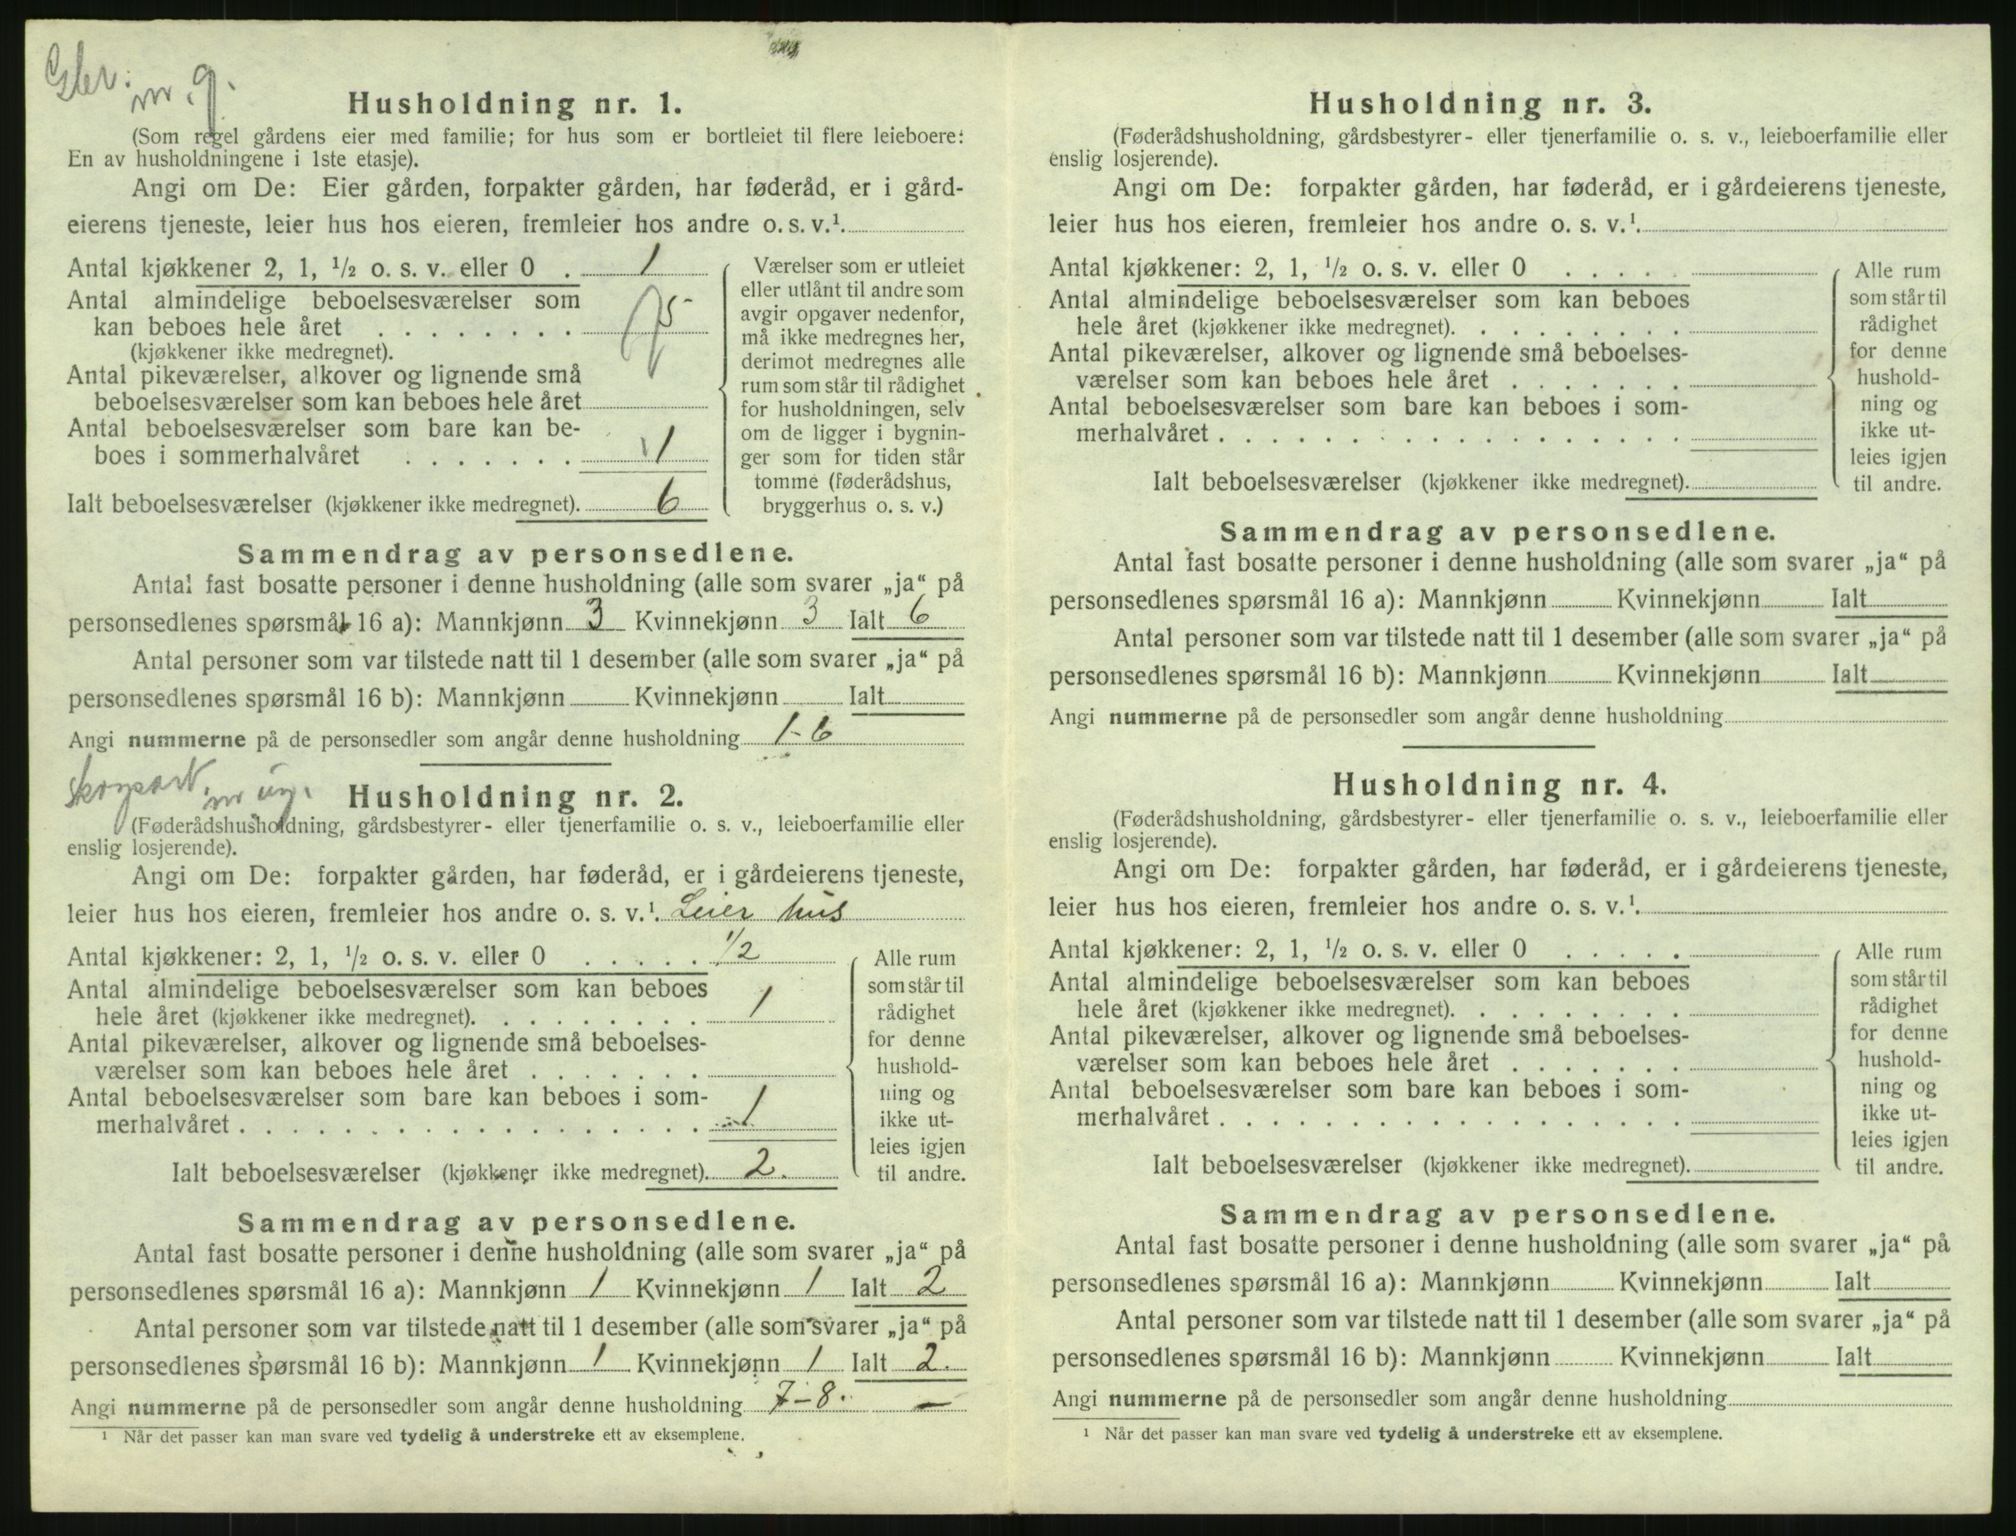 Husholdning nr. 1.
(Som regel gårdens eier med familie; for hus som er bortleiet til flere leieboere:
En av husholdningene i 1ste etasje).
Angi om De: Eier gården, forpakter gården, har føderåd, er i gård-
eierens tjeneste, leier hus hos eieren, fremleier hos andre o. s. v.¹.
Antal kjøkkener 2, 1, ½ o. s. v. eller 0 . 1
Antal almindelige beboelsesværelser som
kan beboes hele året . . . . . . . . 5
(kjøkkener ikke medregnet).
Antal pikeværelser, alkover og lignende små
beboelsesværelser som kan beboes hele året
Antal beboelsesværelser som bare kan be-
boes i sommerhalvåret . . . . . . . 1
Ialt beboelsesværelser (kjøkkener ikke medregnet). 6
Værelser som er utleiet
eller utlånt til andre som
avgir opgaver nedenfor,
må ikke medregnes her,
derimot medregnes alle
rum som står til rådighet
for husholdningen, selv
om de ligger i bygnin-
ger som for tiden står
tomme (føderådshus,
bryggerhus o. s. v.)
Sammendrag av personsedlene.
Antal fast bosatte personer i denne husholdning (alle som svarer „ja“ på
personsedlenes spørsmål 16 a): Mannkjønn 3 Kvinnekjønn 3 Ialt 6
Antal personer som var tilstede natt til 1 desember (alle som svarer „ja“ på
personsedlenes spørsmål 16 b): Mannkjønn Kvinnekjønn Ialt
Angi nummerne på de personsedler som angår denne husholdning 1-6
Husholdning nr. 2.
(Føderådshusholdning, gårdsbestyrer- eller tjenerfamilie o. s. v., leieboerfamilie eller
enslig losjerende).
Angi om De: forpakter gården, har føderåd, er i gårdeierens tjeneste,
leier hus hos eieren, fremleier hos andre o. s. v.¹. Leier hus
Antal kjøkkener: 2, 1, ½ o. s. v. eller 0 . . . . . 1/2
Antal almindelige beboelsesværelser som kan beboes
hele året (kjøkkener ikke medregnet). . . . . . . . . 1
Antal pikeværelser, alkover og lignende små beboelses-
værelser som kan beboes hele året . . . . . . .
Antal beboelsesværelser som bare kan beboes i som-
merhalvåret . . . . . . . . . . . . . . . . . . 1
Ialt beboelsesværelser (kjøkkener ikke medregnet). 2.
Alle rum
som står til
rådighet
for denne
hushold-
ning og
ikke ut-
leies igjen
til andre.
Sammendrag av personsedlene.
Antal fast bosatte personer i denne husholdning (alle som svarer „ja“ på
personsedlenes spørsmål 16 a): Mannkjønn 1 Kvinnekjønn 1 Ialt 2
Antal personer som var tilstede natt til 1 desember (alle som svarer „ja“ på
personsedlenes spørsmål 16 b): Mannkjønn 1 Kvinnekjønn 1 Ialt 2.
Angi nummerne på de personsedler som angår denne husholdning 7-8. —
¹ Når det passer kan man svare ved tydelig å understreke ett av eksemplene.
Husholdning nr. 3.
(Føderådshusholdning, gårdsbestyrer- eller tjenerfamilie o. s. v., leieboerfamilie eller
enslig losjerende).
Angi om De: forpakter gården, har føderåd, er i gårdeierens tjeneste,
leier hus hos eieren, fremleier hos andre o. s. v.¹.
Antal kjøkkener: 2, 1, ½ o. s. v. eller 0 . . . . .
Antal almindelige beboelsesværelser som kan beboes
hele året (kjøkkener ikke medregnet). . . . . . . . .
Antal pikeværelser, alkover og lignende små beboelses-
værelser som kan beboes hele året . . . . . . .
Antal beboelsesværelser som bare kan beboes i som-
merhalvåret . . . . . . . . . . . . . . . . . .
Ialt beboelsesværelser (kjøkkener ikke medregnet).
Alle rum
som står til
rådighet
for denne
hushold-
ning og
ikke ut-
leies igjen
til andre.
Sammendrag av personsedlene.
Antal fast bosatte personer i denne husholdning (alle som svarer „ja“ på
personsedlenes spørsmål 16 a): Mannkjønn Kvinnekjønn Ialt
Antal personer som var tilstede natt til 1 desember (alle som svarer „ja“ på
personsedlenes spørsmål 16 b): Mannkjønn Kvinnekjønn Ialt
Angi nummerne på de personsedler som angår denne husholdning
Husholdning nr. 4.
(Føderådshusholdning, gårdsbestyrer- eller tjenerfamilie o. s. v., leieboerfamilie eller
enslig losjerende).
Angi om De: forpakter gården, har føderåd, er i gårdeierens tjeneste,
leier hus hos eieren, fremleier hos andre o. s. v.¹.
Antal kjøkkener: 2, 1, ½ o. s. v. eller 0 . . . . .
Antal almindelige beboelsesværelser som kan beboes
hele året (kjøkkener ikke medregnet). . . . . . . . .
Antal pikeværelser, alkover og lignende små beboelses-
værelser som kan beboes hele året . . . . . . .
Antal beboelsesværelser som bare kan beboes i som-
merhalvåret . . . . . . . . . . . . . . . . . .
Ialt beboelsesværelser (kjøkkener ikke medregnet).
Alle rum
som står til
rådighet
for denne
hushold-
ning og
ikke ut-
leies igjen
til andre.
Sammendrag av personsedlene.
Antal fast bosatte personer i denne husholdning (alle som svarer „ja“ på
personsedlenes spørsmål 16 a): Mannkjønn Kvinnekjønn Ialt
Antal personer som var tilstede natt til 1 desember (alle som svarer „ja“ på
personsedlenes spørsmål 16 b): Mannkjønn Kvinnekjønn Ialt
Angi nummerne på de personsedler som angår denne husholdning
¹ Når det passer kan man svare ved tydelig å understreke ett av eksemplene.